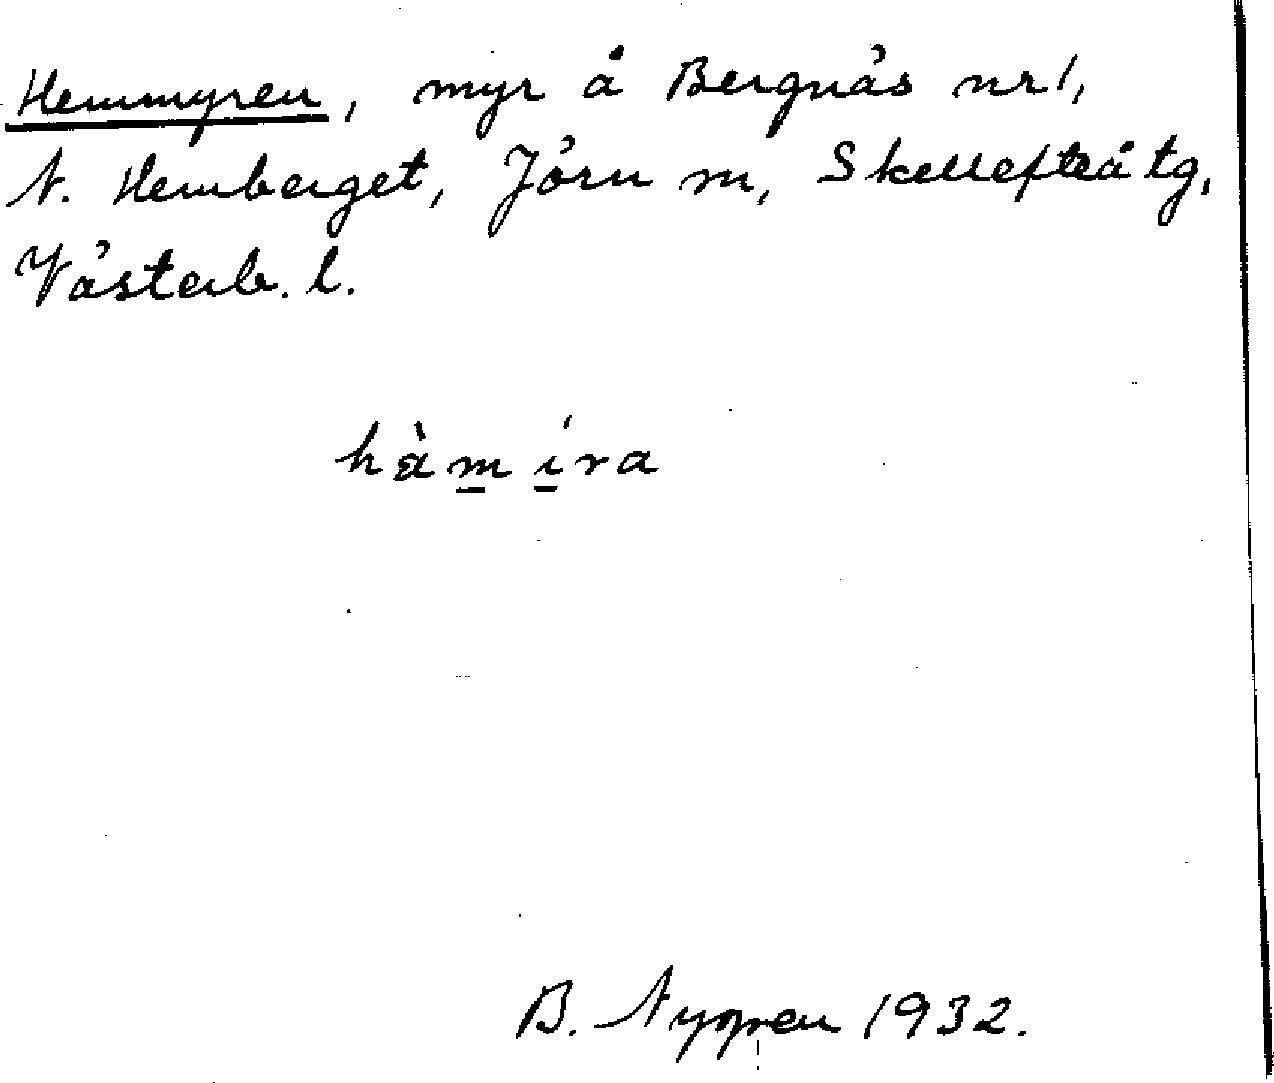 Hemmyren, myr å Bergnäs nr 1,
N. Hemberget, Jörn sn, Skellefteå tg,
Västerb. l.
hàm íra
B. Nygren 1932.